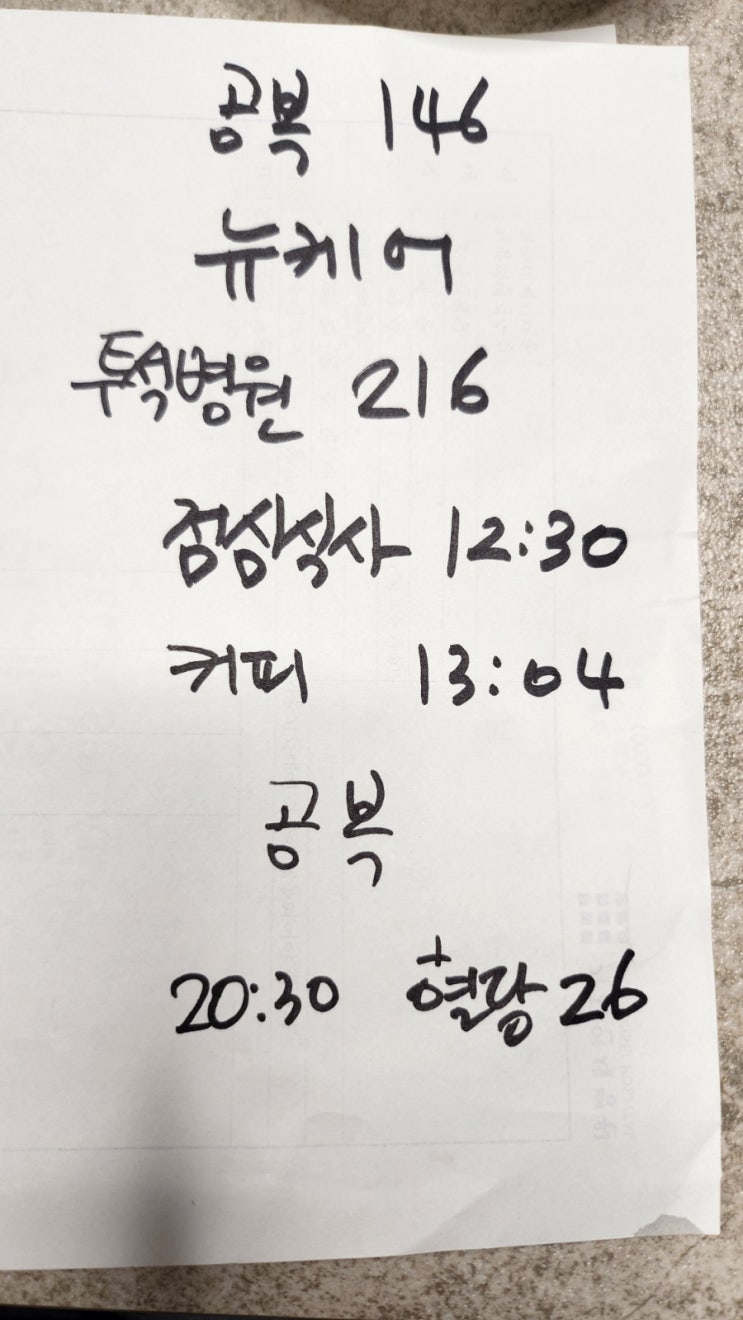 공복 146
뉴케어
투석병원 216
점심식사 12:30
커피 13:04
공복
20:30 혈당 26